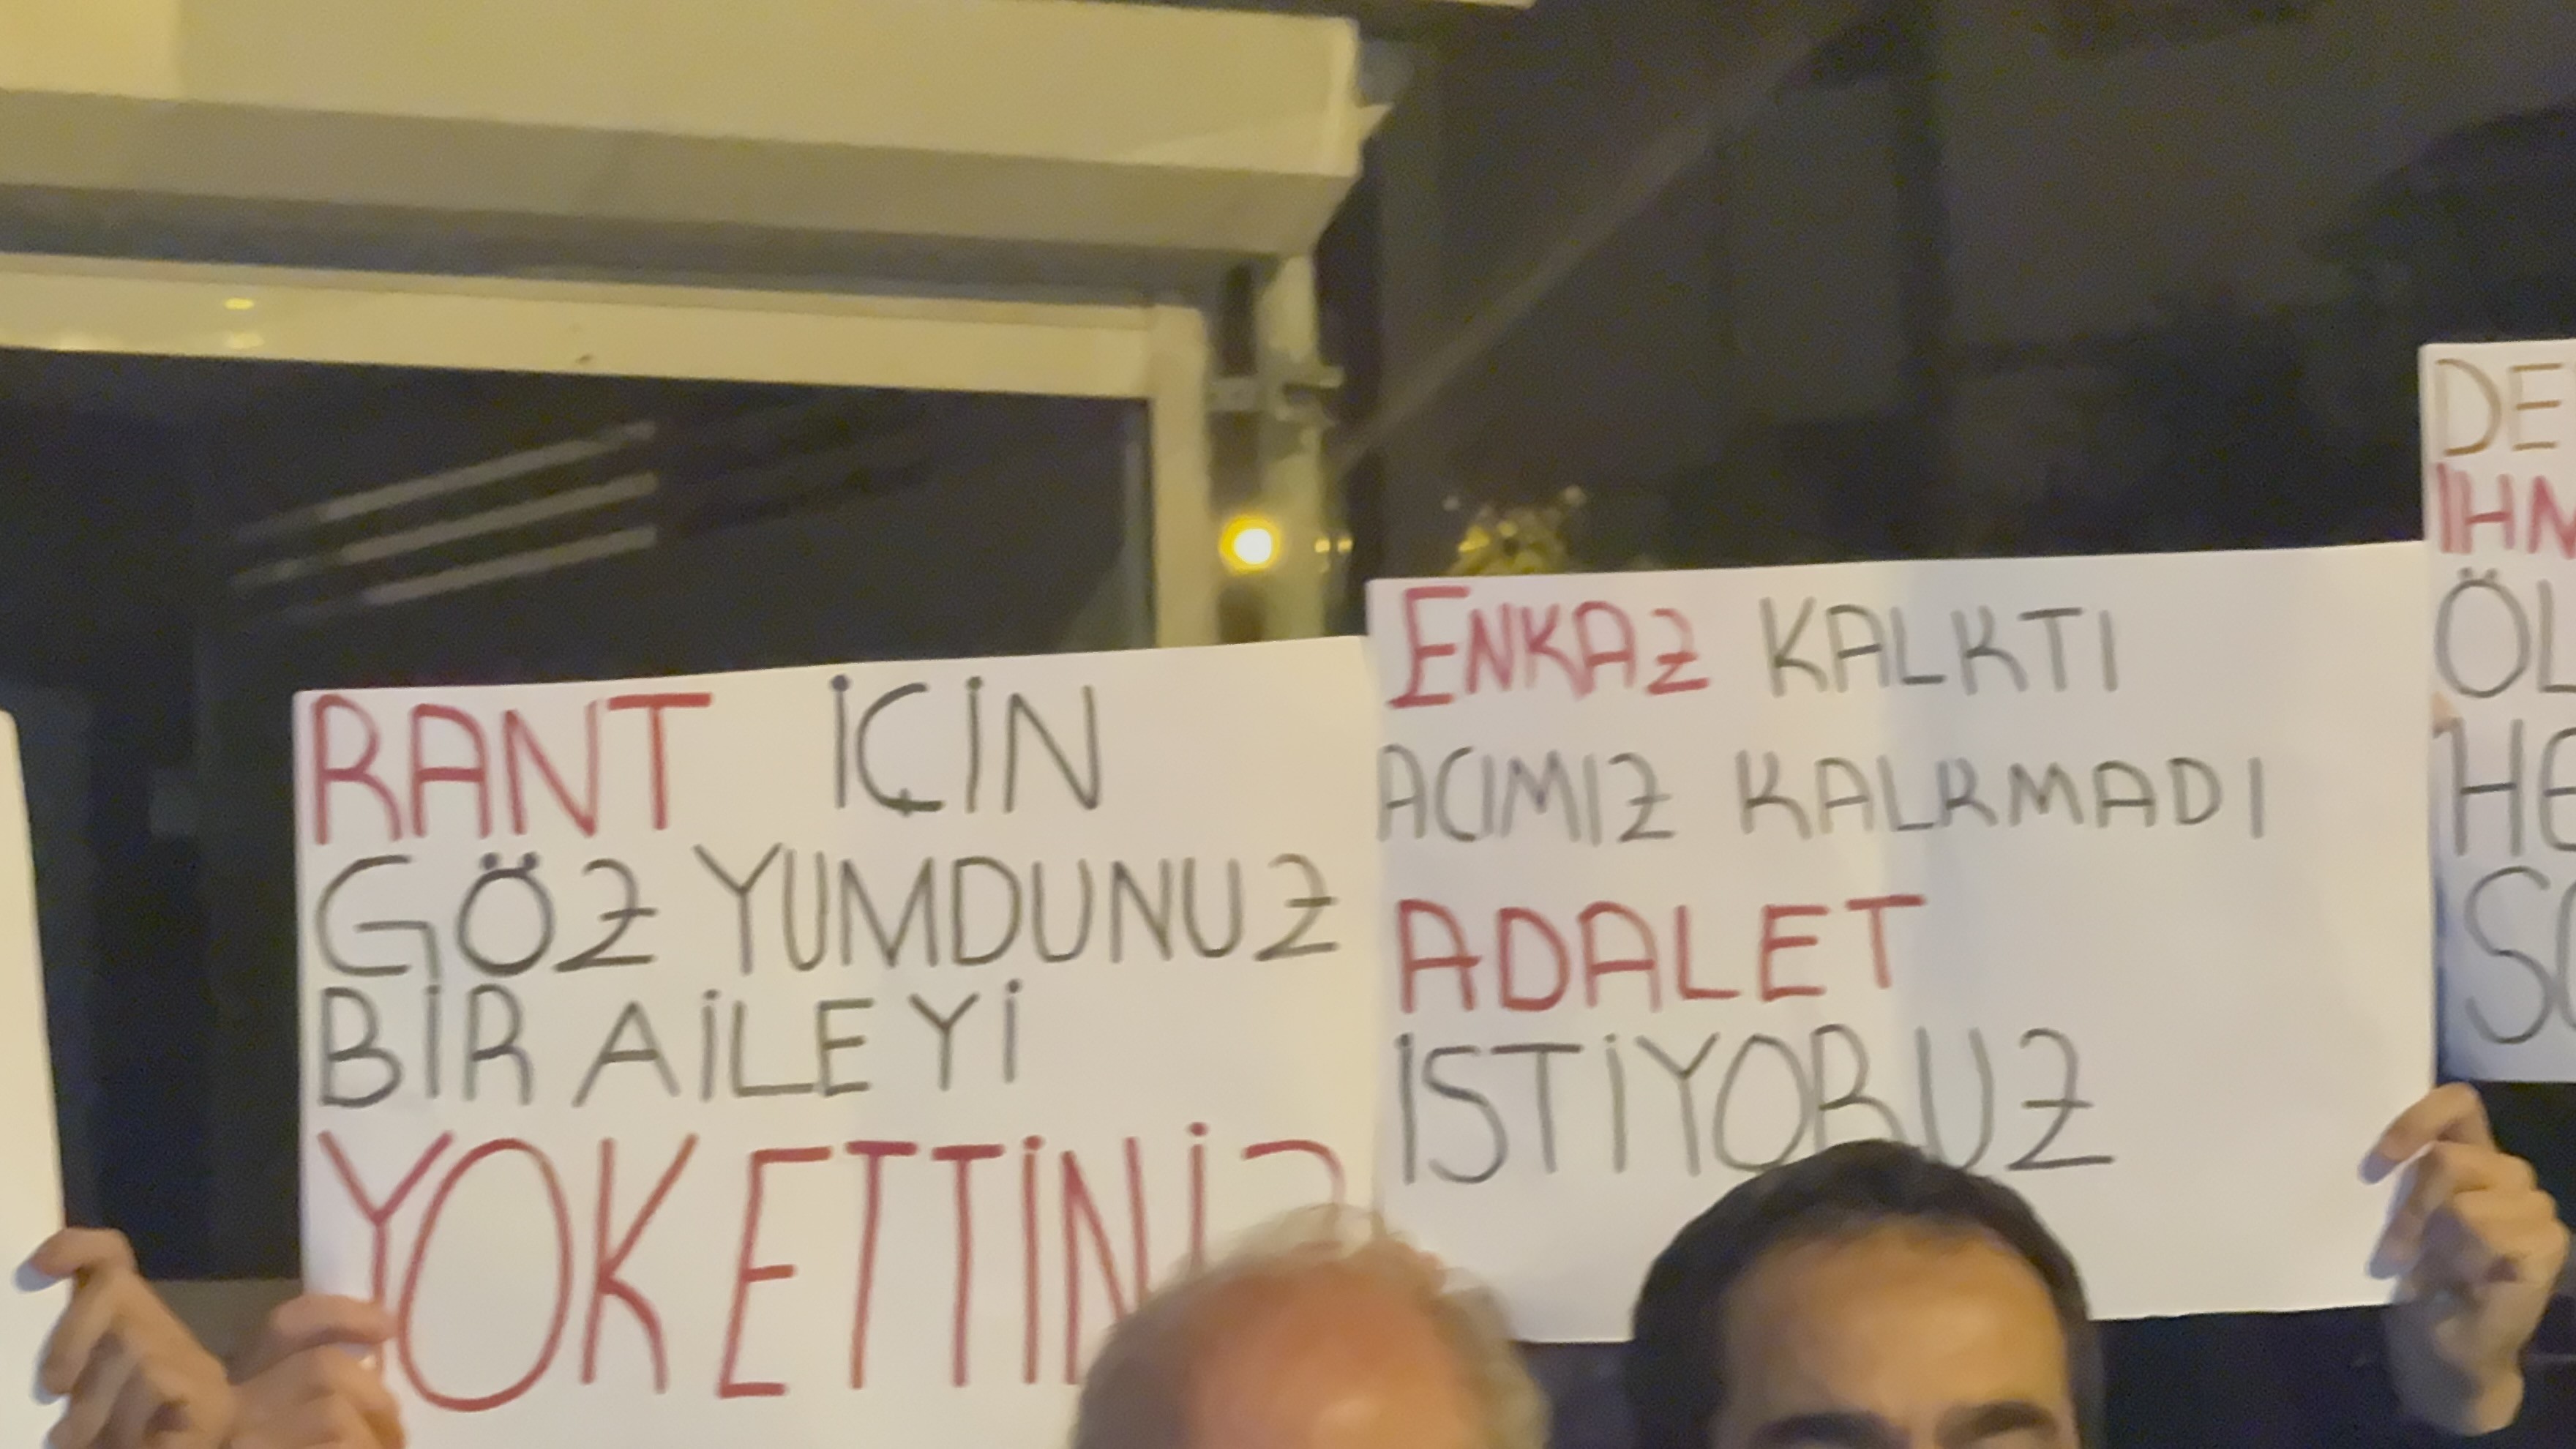 RANT İÇİN
GÖZ YUMDUNUZ
BİR AİLEYİ
YOK ETTİNİZ
ENKAZ KALKTI
ACIMIZ KALKMADI
ADALET
İSTİYORUZ